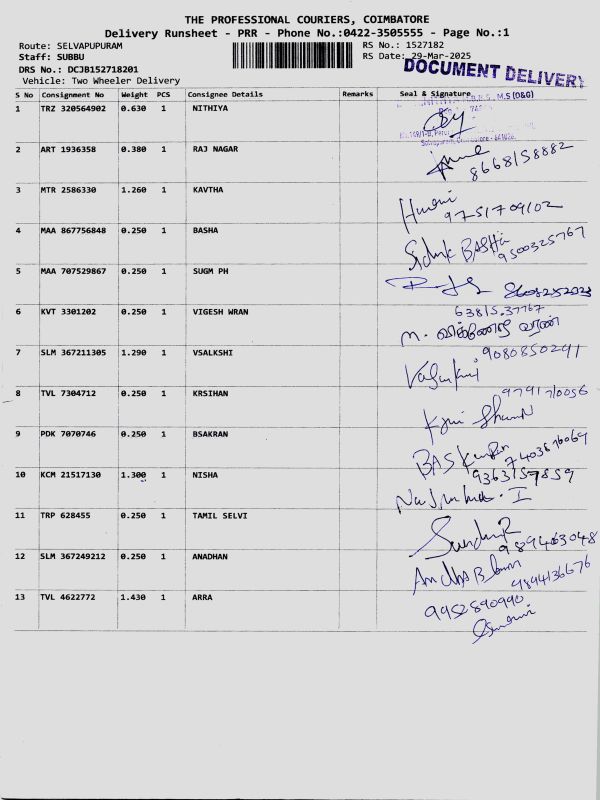 THE PROFESSIONAL COURIERS, COIMBATORE
Delivery Runsheet - PRR - Phone No.:0422-3505555 - Page No.:1
Route: SELVAPUPURAM
RS No.: 1527182
Staff: SUBBU
RS Date: 29-Mar-2025
DRS No.: DCJB152718201
DOCUMENT DELIVERY
Vehicle: Two Wheeler Delivery
S No Consignment No Weight PCS Consignee Details Remarks Seal & Signature
M.S (O&G)
1 TRZ 320564902 0.630 1 NITHIYA
2 ART 1936358 0.380 1 RAJ NAGAR
8668158882
3 MTR 2586330 1.260 1 KAVTHA
9751709102
4 MAA 867756848 0.250 1 BASHA
BASHA
9500325767
5 MAA 707529867 0.250 1 SUGM PH
6 KVT 3301202 0.250 1 VIGESH WRAN
63815.37767
7 SLM 367211305 1.290 1 VSALKSHI
9080850291
8 TVL 7304712 0.250 1 KRSIHAN
9791710056
9 PDK 7070746 0.250 1 BSAKRAN
10 KCM 21517130 1.300 1 NISHA
9363157859
11 TRP 628455 0.250 1 TAMIL SELVI
9894463048
12 SLM 367249212 0.250 1 ANADHAN
9894136676
13 TVL 4622772 1.430 1 ARRA
9952890990